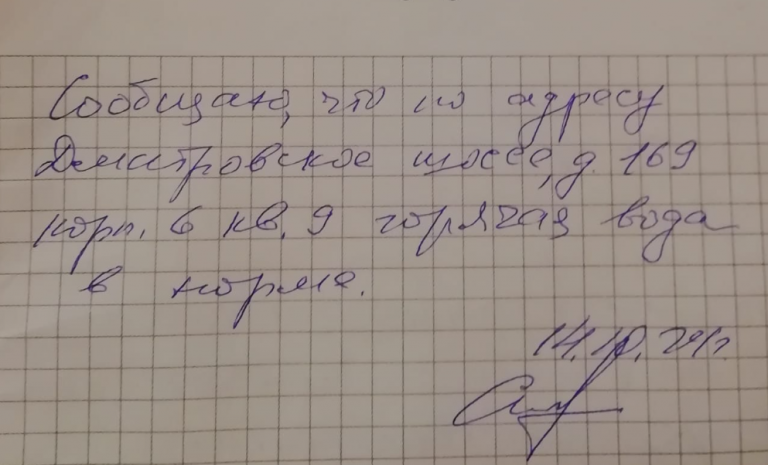 Сообщаю, что по адресу
Дмитровское шоссе, д. 169
корп. 6 кв. 9 горячая вода
в норме.
14.10.24г.